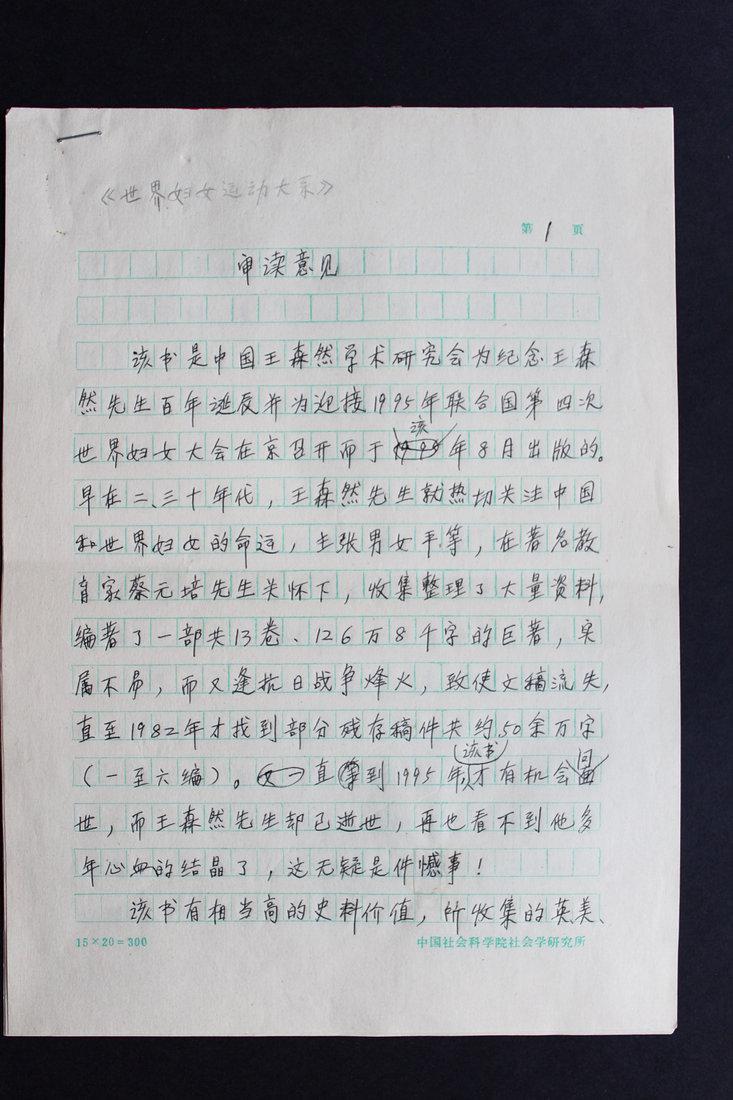 《世界妇女运动大系》
第1頁
审读意见
该书是中国王森然学术研究会为纪念王森
然先生百年诞辰并为迎接1995年联合国第四次
该
世界妇女大会在京召开而于年8月出版的。
早在二、三十年代，王森然先生就热切关注中国
和世界妇女的命运，主张男女平等，在著名教
育家蔡元培先生关怀下，收集整理了大量资料，
编著了一部共13卷、126万8千字的巨著，实
属不易，而又逢抗日战争烽火，致使文稿流失，
直至1982年才找到部分残存稿件共约50余万字
该书 问
（一至六编）。直到1995年，才有机会
世，而王森然先生却已逝世，再也看不到他多
年心血的结晶了，这无疑是件憾事！
该书有相当高的史料价值，所收集的英美、
15×20=300 中国社会科学院社会学研究所